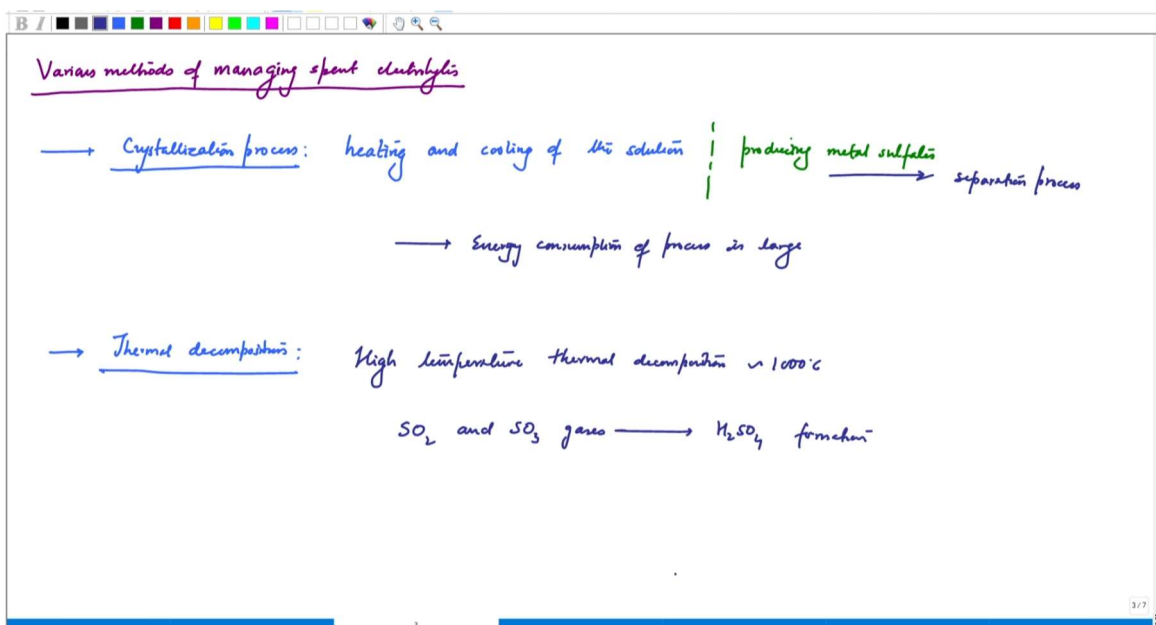 B I
Various methods of managing spent electrolytes
→ Crystallization process: heating and cooling of the solution ¦ producing metal sulfates → separation process
→ Energy consumption of process is large
→ Thermal decompositions: High temperature thermal decomposition ~ 1000°C
SO₂ and SO₃ gases → H₂SO₄ formation
3/7